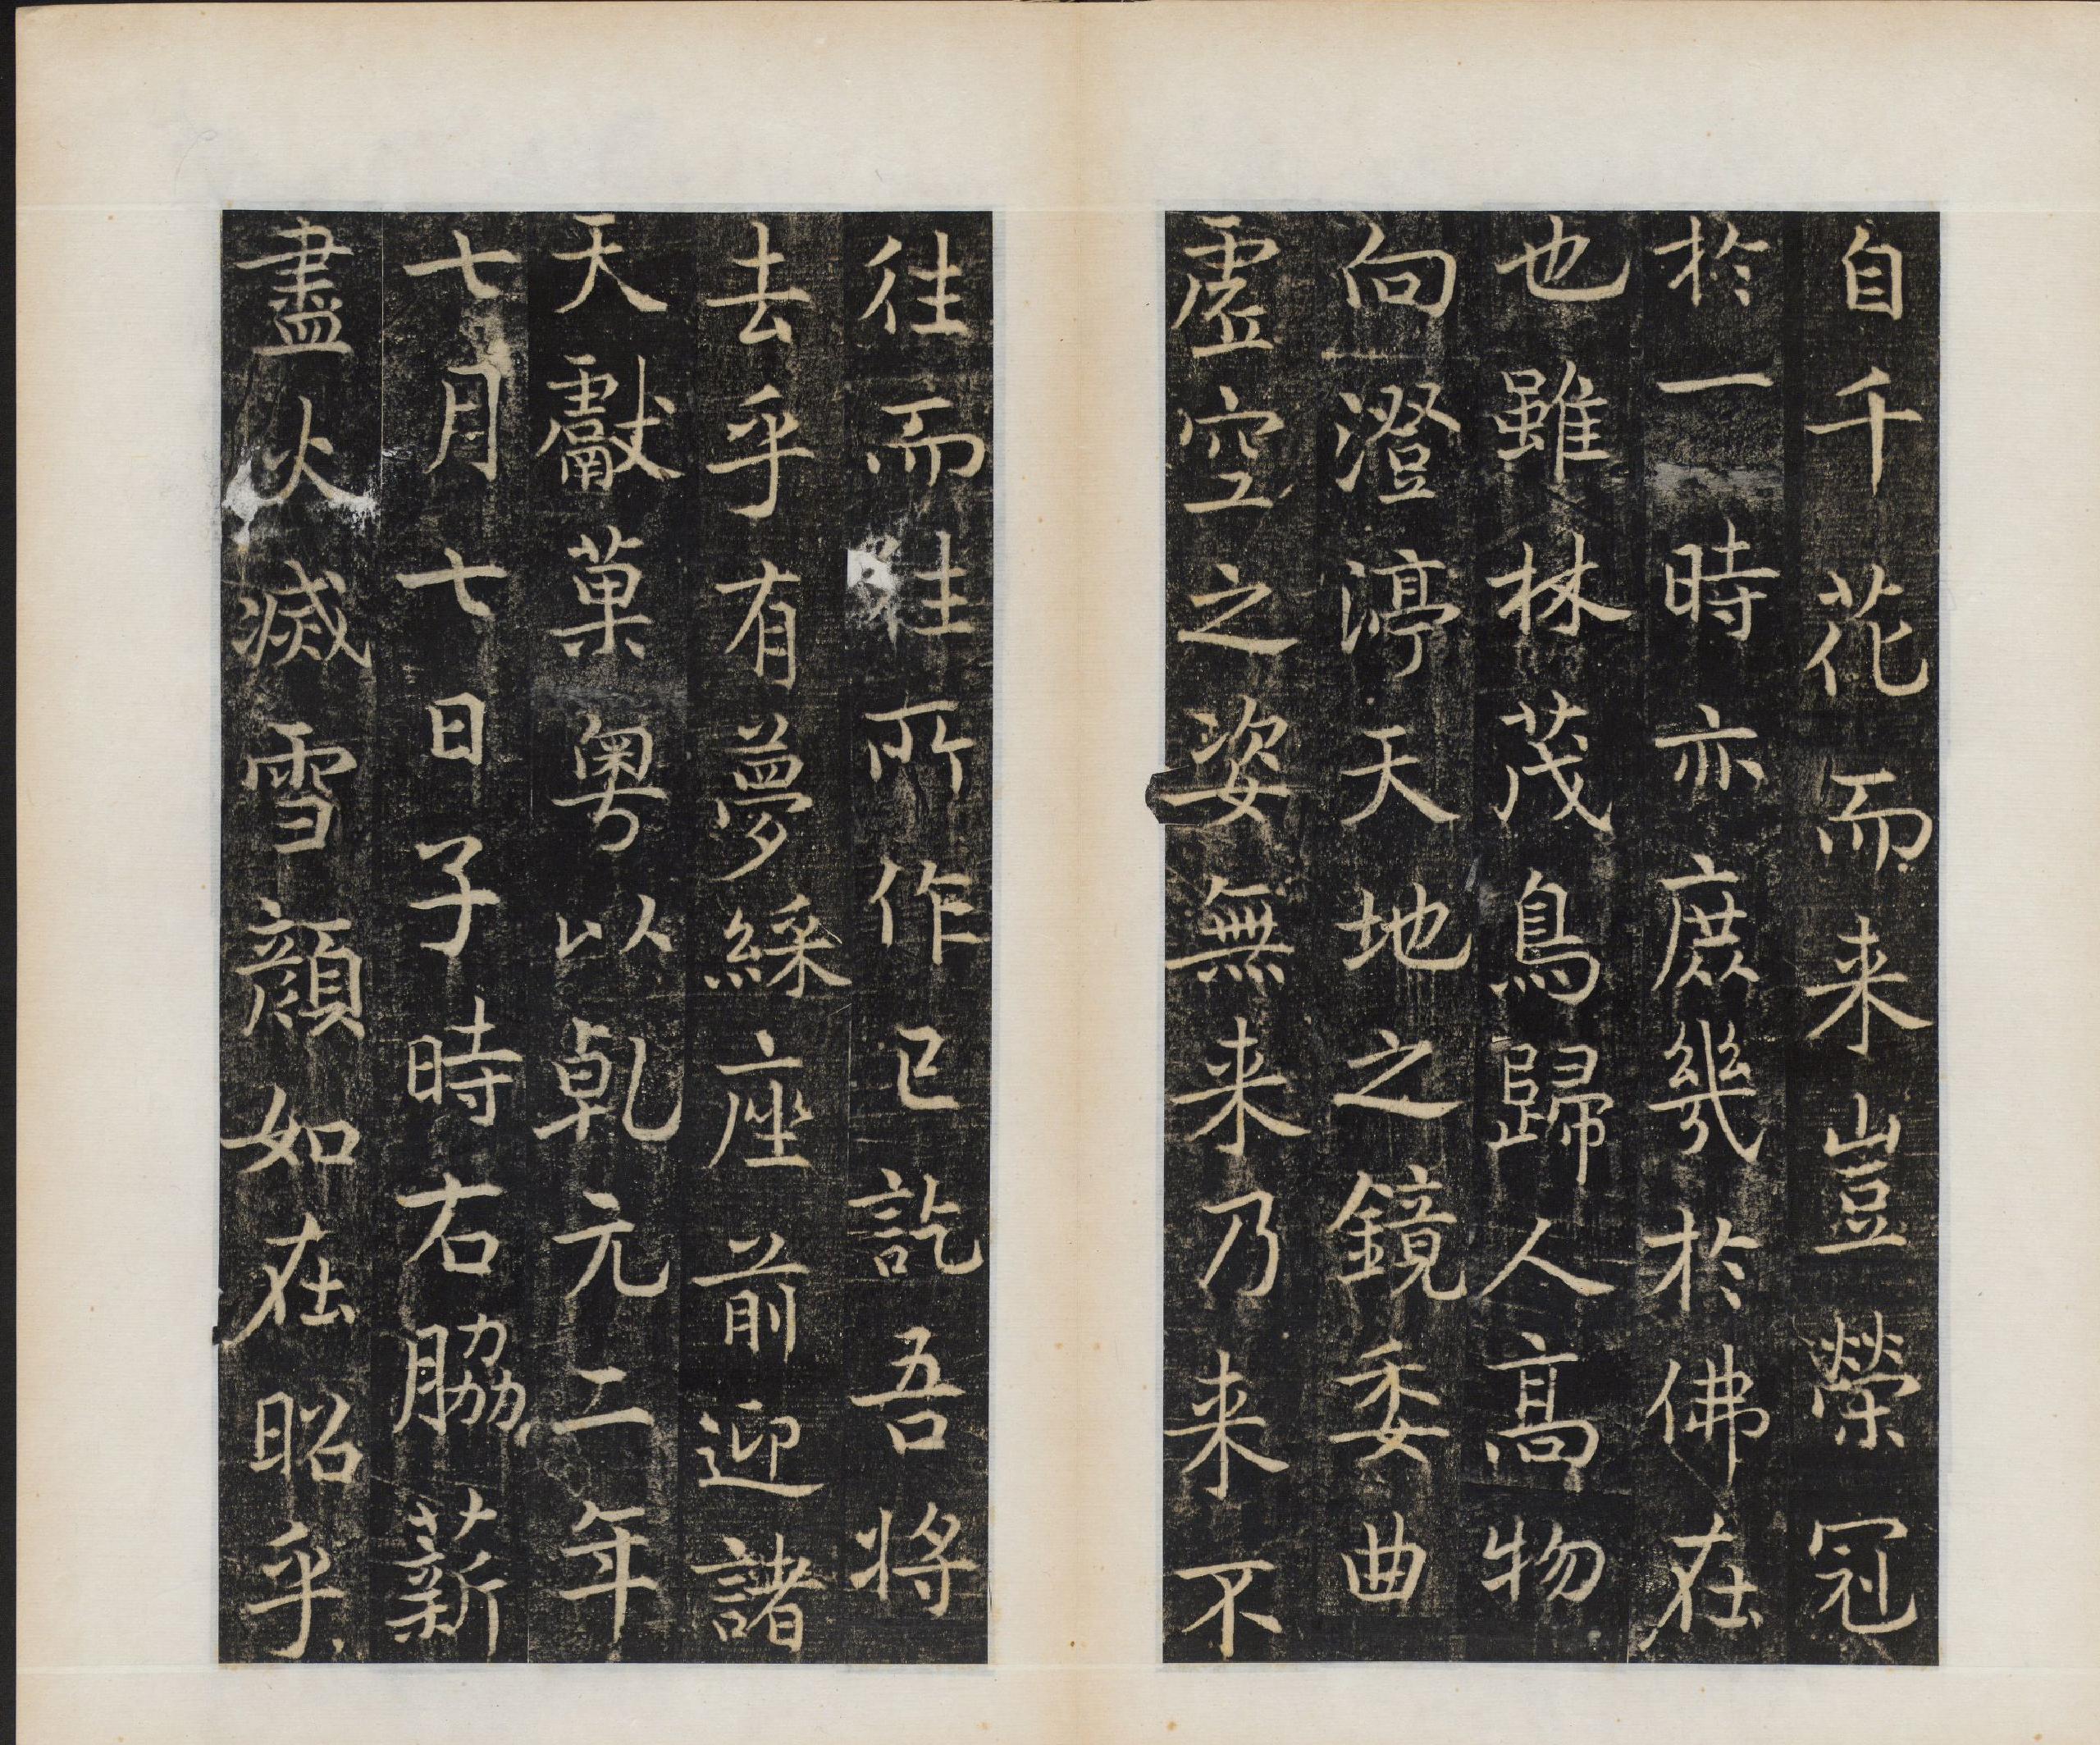 自千花而来豈榮冠
於一時亦庶幾於佛在
也雖林茂鳥歸人高物
向澄渟天地之鏡委曲
虛空之姿無来乃来不
往而往所作已訖吾将
去乎有夢綵座前迎諸
天獻菓粵以乾元二年
七月七日子時右脇薪
盡火滅雪顔如在昭乎